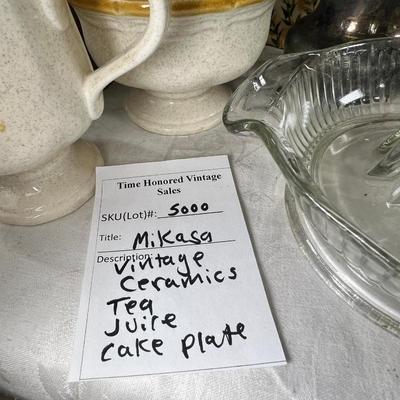 Time Honored Vintage
Sales
SKU(Lot)#: 5000
Title: Mikasa
Description: Vintage
Ceramics
Tea
Juice
Cake Plate